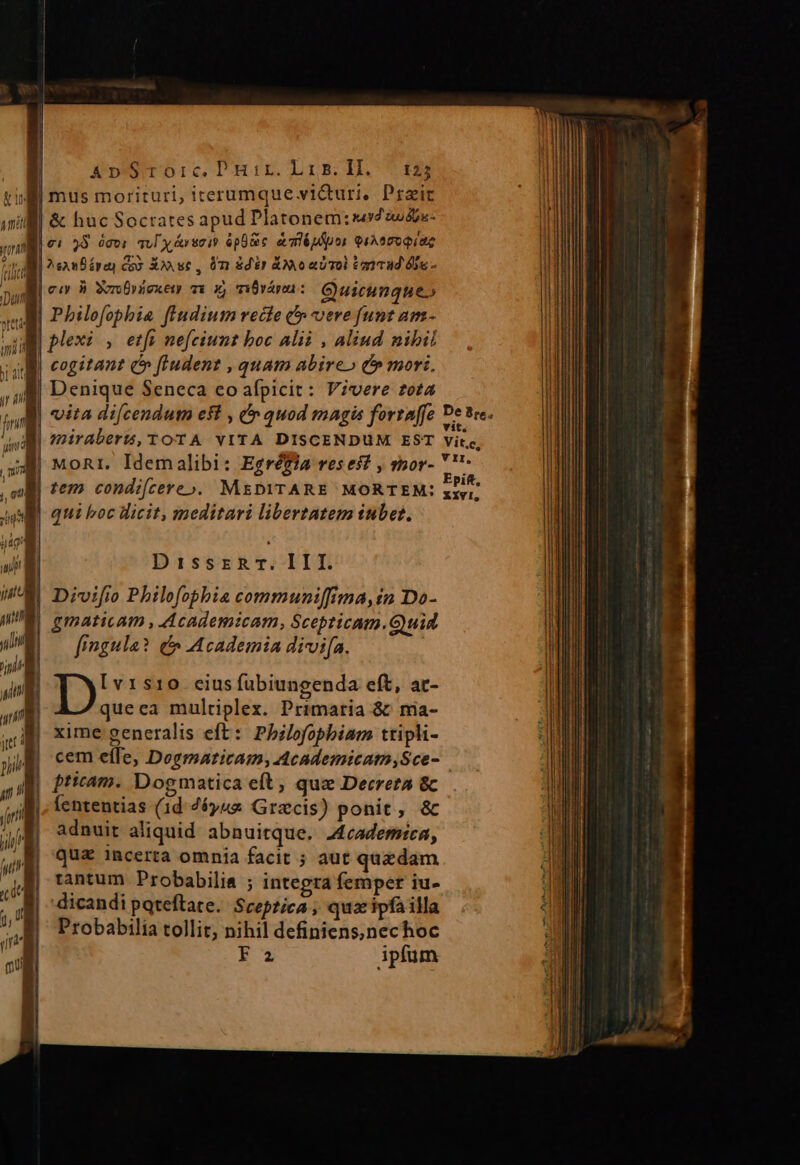 AD STOIC. PHIL. LIB. II. 123
mus morituri, iterumque victuri. Præit
& huc Socrates apud Platonem:
Quicunque
Philosophia studium recte & vere sunt am-
plexi , etsi nesciunt hoc alii , aliud nihil
cogitant & student , quam abire & mori.
Denique Seneca eo aspicit: Vivere tota
vita discendum est , & quod magis fortasse
miraberis, TOTA VITA DISCENDUM EST
MORI. Idem alibi: Egregia res est , mor-
tem condiscere. MEDITARE MORTEM:
qui hoc dicit, meditari libertatem iubet.
De Bre.
vit.
Vit.c.
VII.
Epist.
XXVI.
DISSERT. III.
Divisio Philosophia communissima, in Do-
gmaticam , Academicam, Scepticam. Quid
singula? & Academia divisa.
DIVISIO eius subiungenda est, at-
que ea multiplex. Primaria & ma-
xime generalis est: Philosophiam tripli-
cem esse, Dogmaticam, Academicam, Sce-
pticam. Dogmatica est, quæ Decreta &
sententias (id δόγμα Græcis) ponit, &
adnuit aliquid abnuitque. Academica,
quæ incerta omnia facit ; aut quædam
tantum Probabilia ; integra semper iu-
dicandi potestate. Sceptica, quæ ipsa illa
Probabilia tollit, nihil definiens, nec hoc
F 2 ipsum